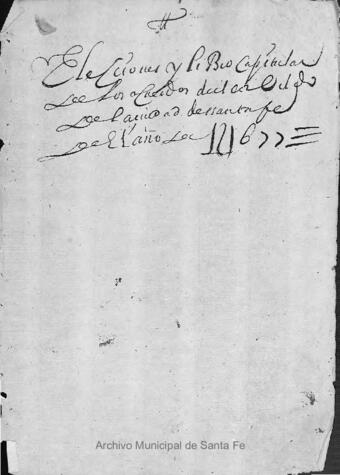 Elecciones y libro Capitular
de los acuerdos del cavildo
de la ciudad de santa fe
de El año de 1677
Archivo Municipal de Santa Fe